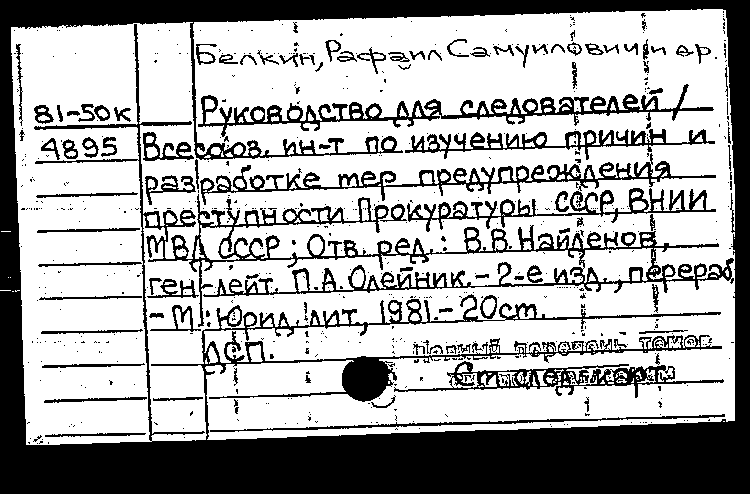 Белкин, Рафаил Самуилович и др.
81-50к Руководство для следователей /
4895 Всесоюз. ин-т по изучению причин и
разработке мер предупреждения
преступности Прокуратуры СССР, ВНИИ
МВД СССР; Отв. ред.: В.В. Найденов,
ген-лейт. П.А. Олейник. - 2-е изд., перераб.
- М.: Юрид. лит., 1981. - 20 см.
ДСП.
Полный перечень томов
См. след. карт.